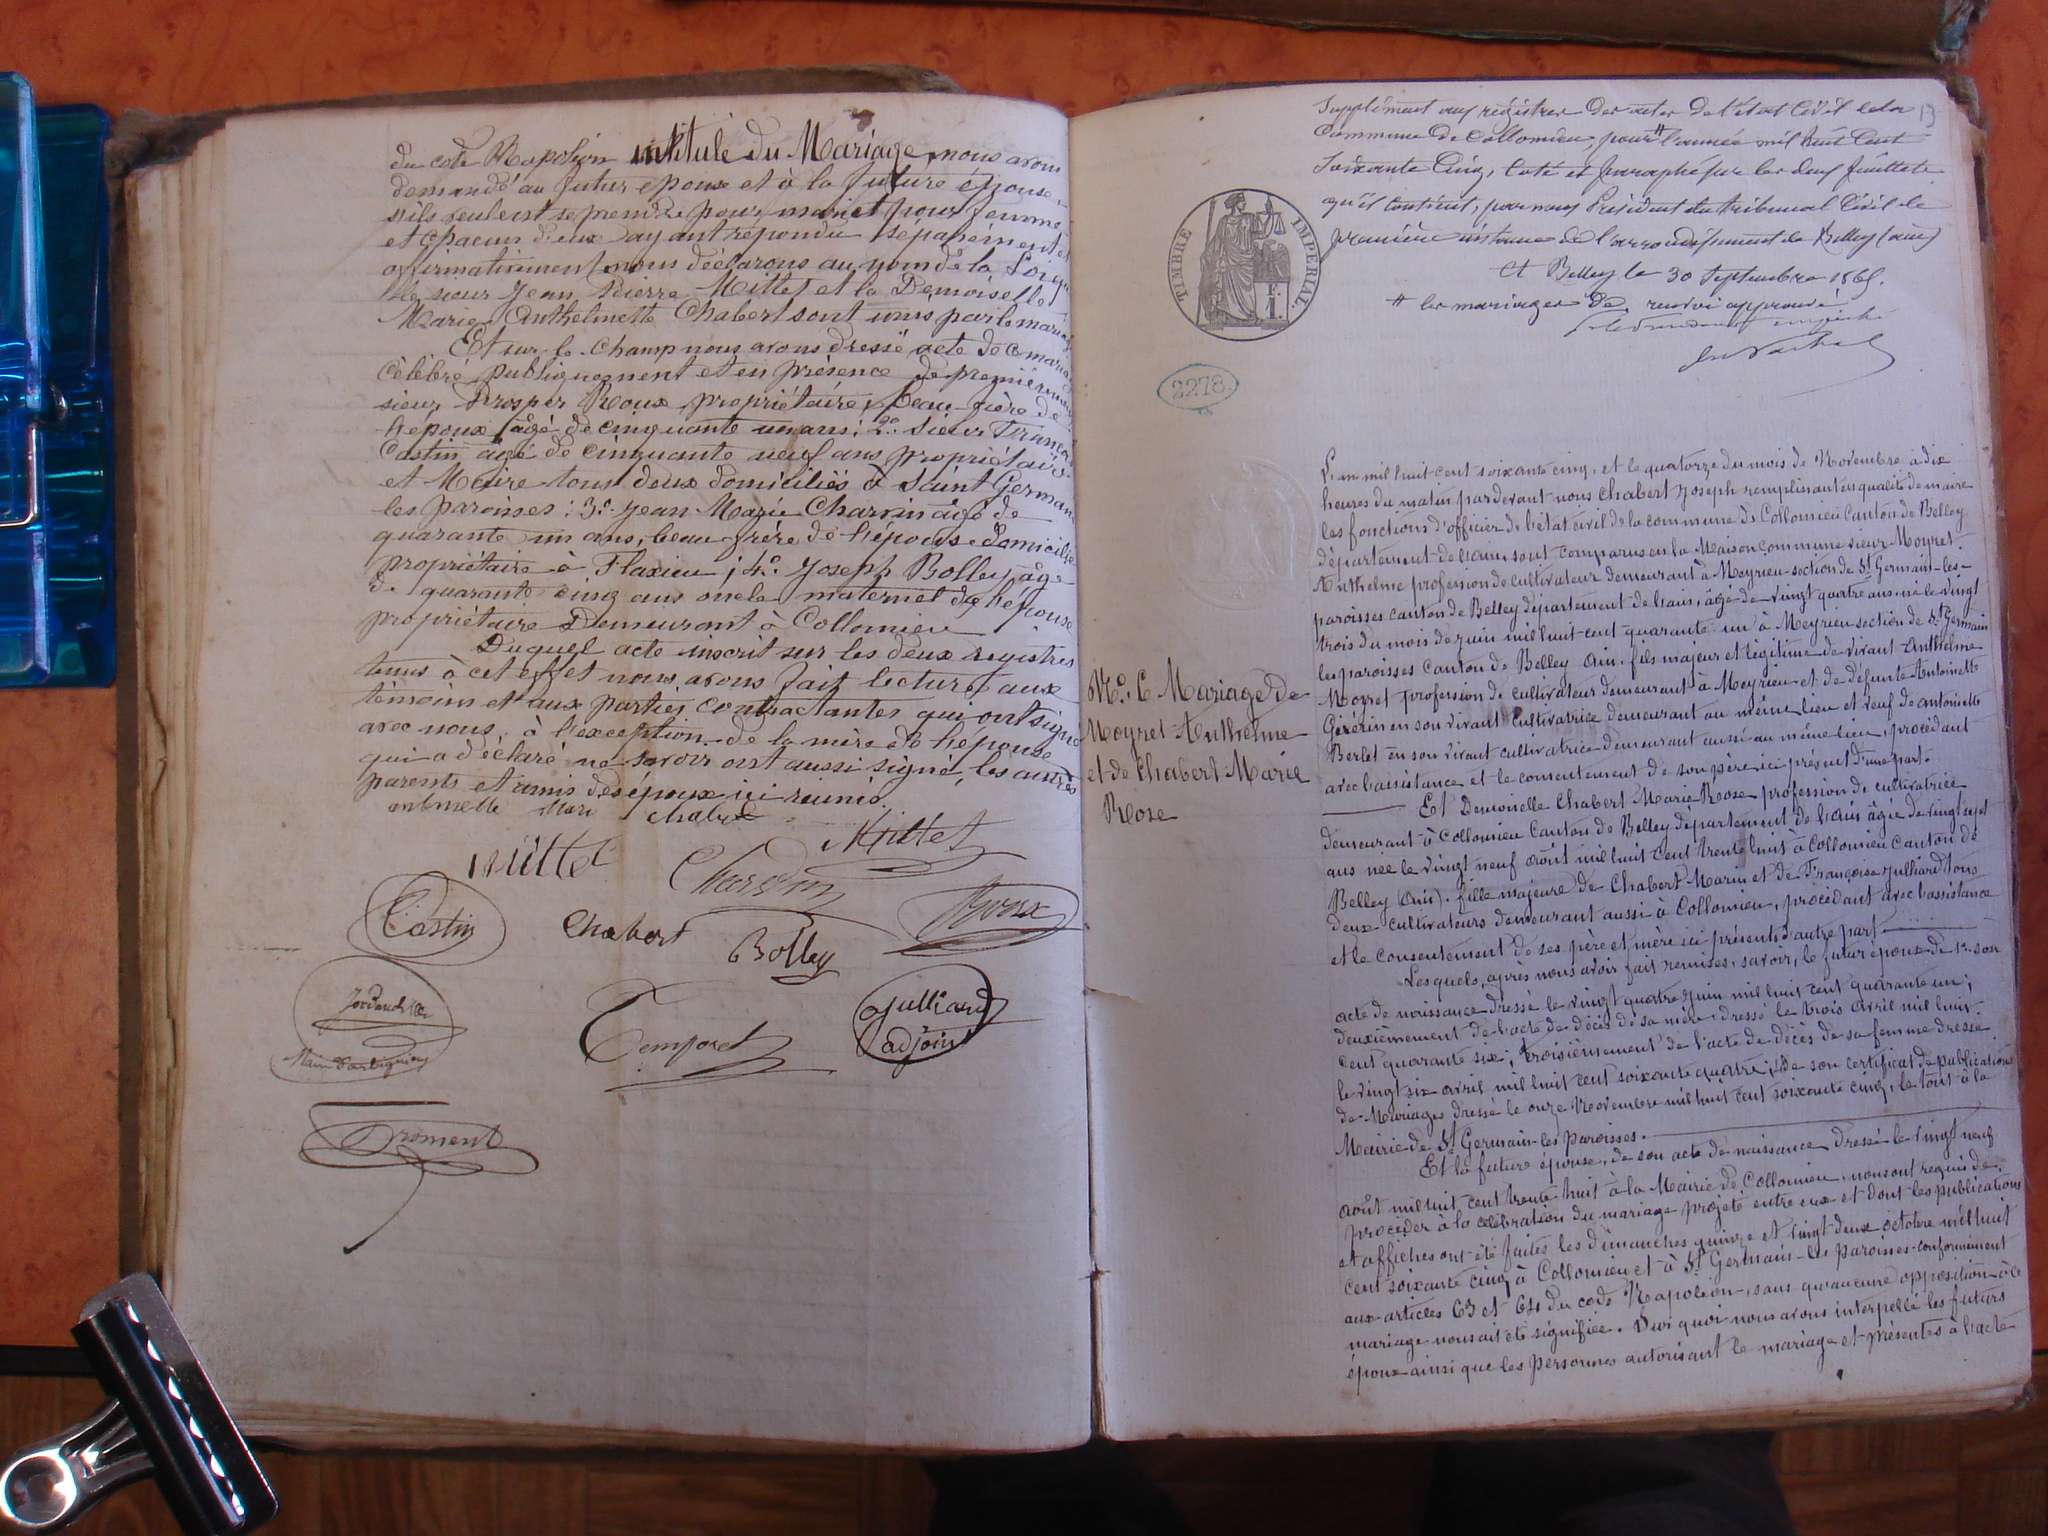 du code Napoléon intitulé du Mariage, nous avons
demandé au futur époux et à la future épouse
s'ils veulent se prendre pour mari et pour femme
et chacun d'eux ayant répondu séparément et
affirmativement nous déclarons au nom de la Loi que
le sieur Jean Pierre Millet et la Demoiselle
Marie Anthelmette Chabert sont unis par le mariage
Et sur le champ nous avons dressé acte de ce mariage
célébré publiquement et en présence de premièrement
sieur Prosper Roux, propriétaire, beau-frère de
l'époux âgé de cinquante un ans; 2o. Sieur François
Castin âgé de cinquante neuf ans propriétaire
et Maire tous deux domiciliés à Saint Germain
les paroisses; 3o. Jean Marie Charvin âgé de
quarante un ans, beau frère de l'épouse domicilié
propriétaire à Flaxieu; 4o. Joseph Bolley âgé
de quarante cinq ans oncle maternel de l'épouse
propriétaire Demeurant à Collomieu
Duquel acte inscrit sur les deux registres
tenus à cet effet nous avons fait lecture aux
témoins et aux parties contractantes qui ont signé
avec nous, à l'exception de la mère de l'épouse
qui a déclaré ne savoir ont aussi signé, les autres
parents et amis des époux ici réunis.
Mari Chabert
Millet
Millet
Castin
Chabert
Bolley
Roux
Temporel
Julliand
adjoint
Froment
Supplément aux régistres des actes de l'état Civil de la 13
Commune de Collomieu, pour # l'année mil huit Cent
Soixante Cinq, Coté et paraphé sur les deux feuillets
qu'il contient, par nous Président du tribunal Civil de
première instance de l'arrondissement de Belley (ain)
A Belley le 30 Septembre 1865.
# les mariages de renvoi approuvé
TIMBRE IMPÉRIAL
2278
L'an mil huit cent soixante cinq, et le quatorze du mois de Novembre à dix
heures du matin pardevant nous Chabert Joseph remplissant en qualité de maire
les fonctions d'officier de l'état civil de la commune de Collomieu Canton de Belley
département de l'ain, sont comparus en la Maison commune sieur Moyret
Anthelme profession de cultivateur demeurant à Meyrieu section de St Germain-les-
paroisses canton de Belley département de l'ain, âgé de vingt quatre ans né le vingt
trois du mois de juin mil huit cent quarante un à Meyrieu section de St Germain
les paroisses Canton de Belley Ain. fils majeur et légitime de vivant Anthelme
Moyret profession de cultivateur demeurant à Meyrieu et de défunte Antoinette
Gérérin en son vivant cultivatrice demeurant au même lieu et veuf de antoinette
Berlet en son vivant cultivatrice demeurant aussi au même lieu, procédant
avec l'assistance et le consentement de son père ici présent d'une part.
No. 6 Mariage de
Moyret Anthelme
et de Chabert Marie
Rose
Et Demoiselle Chabert Marie Rose profession de cultivatrice
demeurant à Collomieu Canton de Belley département de l'ain âgée de vingt sept
ans née le vingt neuf août mil huit cent trente huit à Collomieu canton de
Belley (Ain). fille majeure de Chabert Marin et de Françoise Julliard tous
deux cultivateurs demeurant aussi à Collomieu, procédant avec l'assistance
et le consentement de ses père et mère ici présents d'autre part
Lesquels, après nous avoir fait remises, savoir, le futur époux de 1o. son
acte de naissance dressé le vingt quatre juin mil huit cent quarante un;
deuxièmement de l'acte de décès de sa mère dressé le trois avril mil huit
cent quarante six; troisièmement de l'acte de décès de sa femme dressé
le vingt six avril mil huit cent soixante quatre; de son certificat de publications
de Mariages dressé le onze Novembre mil huit cent soixante cinq, le tout à la
Mairie de St Germain-les paroisses.
Et la future épouse, de son acte de naissance dressé le vingt neuf
août mil huit cent trente huit à la Mairie de Collomieu, nous ont requis de
procéder à la célébration du mariage projeté entre eux et dont les publications
et affiches ont été faites les dimanches quinze et vingt deux octobre mil huit
cent soixante cinq à Collomieu et à St Germain-les paroisses conformément
aux articles 63 et 64 du code Napoléon, sans qu'aucune opposition à ce
mariage nous ait été signifiée. Sur quoi nous avons interpellé les futurs
époux ainsi que les personnes autorisant le mariage et présentes à l'acte